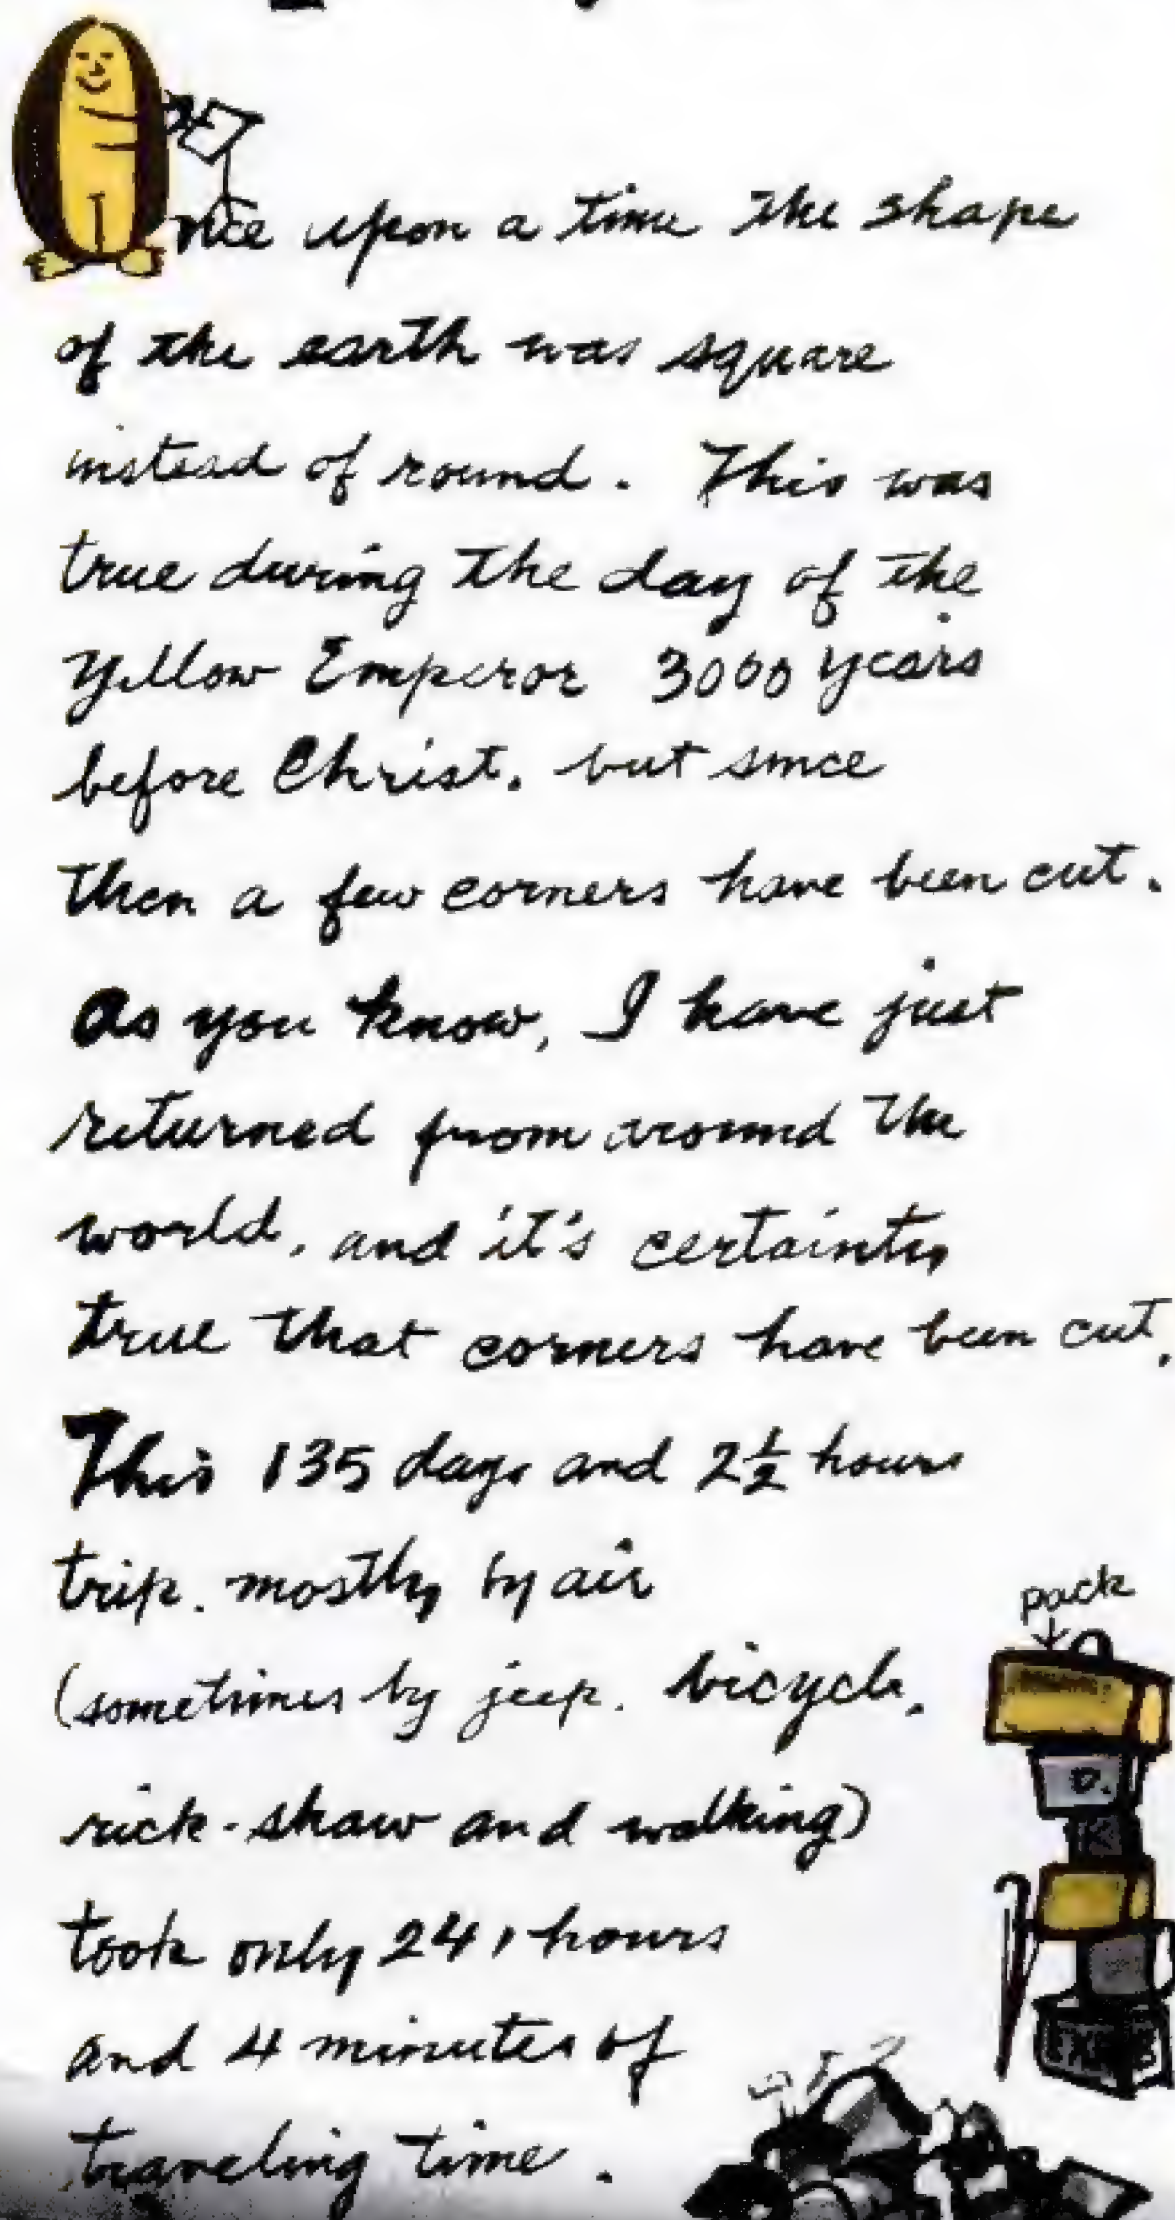 Once upon a time the shape
of the earth was square
instead of round. This was
true during the day of the
Yellow Emperor 3000 years
before Christ. but since
then a few corners have been cut.
As you know, I have just
returned from around the
world, and it's certainty
true that corners have been cut.
This 135 days and 2½ hours
trip. mostly by air
pack
(sometimes by jeep. bicycle,
D.
rick-shaw and walking)
took only 241 hours
and 4 minutes of
traveling time.